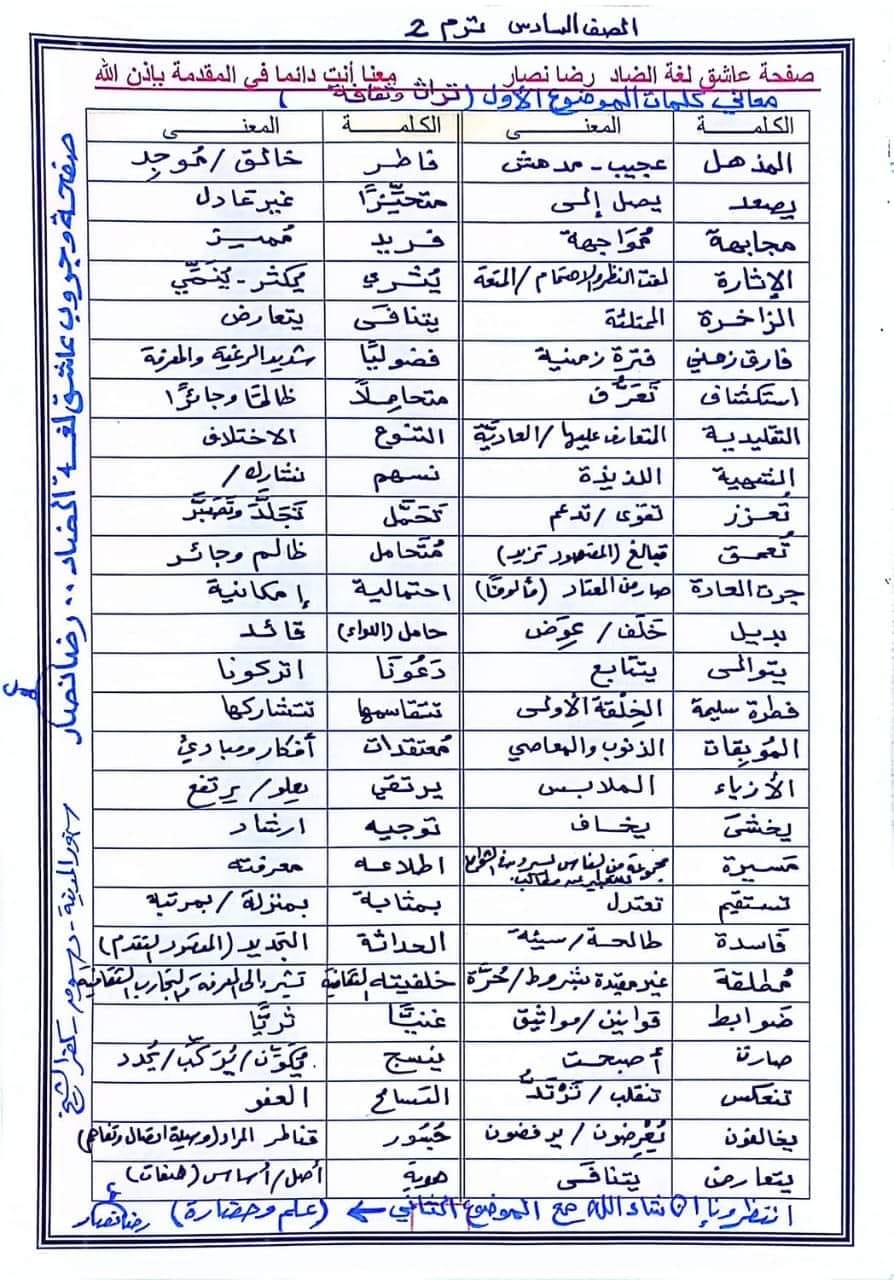 الصف السادس ترم 2
صفحة عاشق لغة الضاد رضا نصار معنا أنت دائما في المقدمة بإذن الله
معاني كلمات الموضوع الأول (تراث وثقافة)
الكلمة المعنى الكلمة المعنى
المذهل عجيب - مدهش فاطر خالق / مُوجِد
يصعد يصل إلى متحيِّزًا غير عادل
مجابهة مُوَاجهة فريد مُميز
الإثارة لفت النظر والاهتمام / المتعة يُثري يكثر - يُنَمِّي
الزاخرة الممتلئة يتنافى يتعارض
فارق زمني فترة زمنية فضوليًّا شديد الرغبة والمعرفة
استكشاف تَعَرُّف متحامِلًا ظالمًا وجائرًا
التقليدية المتعارف عليها / العاديّة التنوع الاختلاف
الشهية اللذيذة نسهم نشارك /
تُعزز تقوى / تدعم تَحَمَّل تَجَلَّدَ وتَصَبَّرَ
تُعمق تبالغ (المقصود تزيد) مُتَحامل ظالم وجائر
جرت العادة صار من المعتاد (مألوفًا) احتمالية إمكانية
بديل خَلَف / عِوَض حامل (اللواء) قائد
يتوالى يتتابع دَعُونَا اتركونا
فطرة سليمة الخِلْقة الأولى تتقاسمها تتشاركها
المُوبِقات الذنوب والمعاصي مُعتقدات أفكار ومبادئ
الأزياء الملابس يرتقي يعلو / يرتفع
يخشى يخاف توجيه ارشاد
مَسيرة مجموعة من الناس في الشوارع اطلاعه معرفته
تستقيم تعتدل بمثابة بمنزلة / بمرتبة
فاسدة طالحة / سيئة الحداثة التجديد (المقصود التقدم)
مُطلقة غير مقيدة بشروط / حُرَّة خلفيته الثقافية تشير إلى المعرفة والتجارب الثقافية
ضوابط قوانين / مواثيق غنيًّا ثريًّا
صارت أصبحت ينسج يُكَوِّن / يُرَكِّب / يُحدد
تنعكس تنقلب / تَرْتَدُّ التسامح العفو
يخالفون يُعْرِضون / يرفضون جُسُور قناطر المراد (وسيلة اتصال وتفاهم)
يتعارض يتنافى هوية أصل / أساس (صفات)
انتظرونا إن شاء الله مع الموضوع الثاني ← (علم وحضارة) رضا نصار
صفحة وجروب عاشق لغة الضاد .. رضا نصار
سنهور المدينة - دسوق - كفر الشيخ